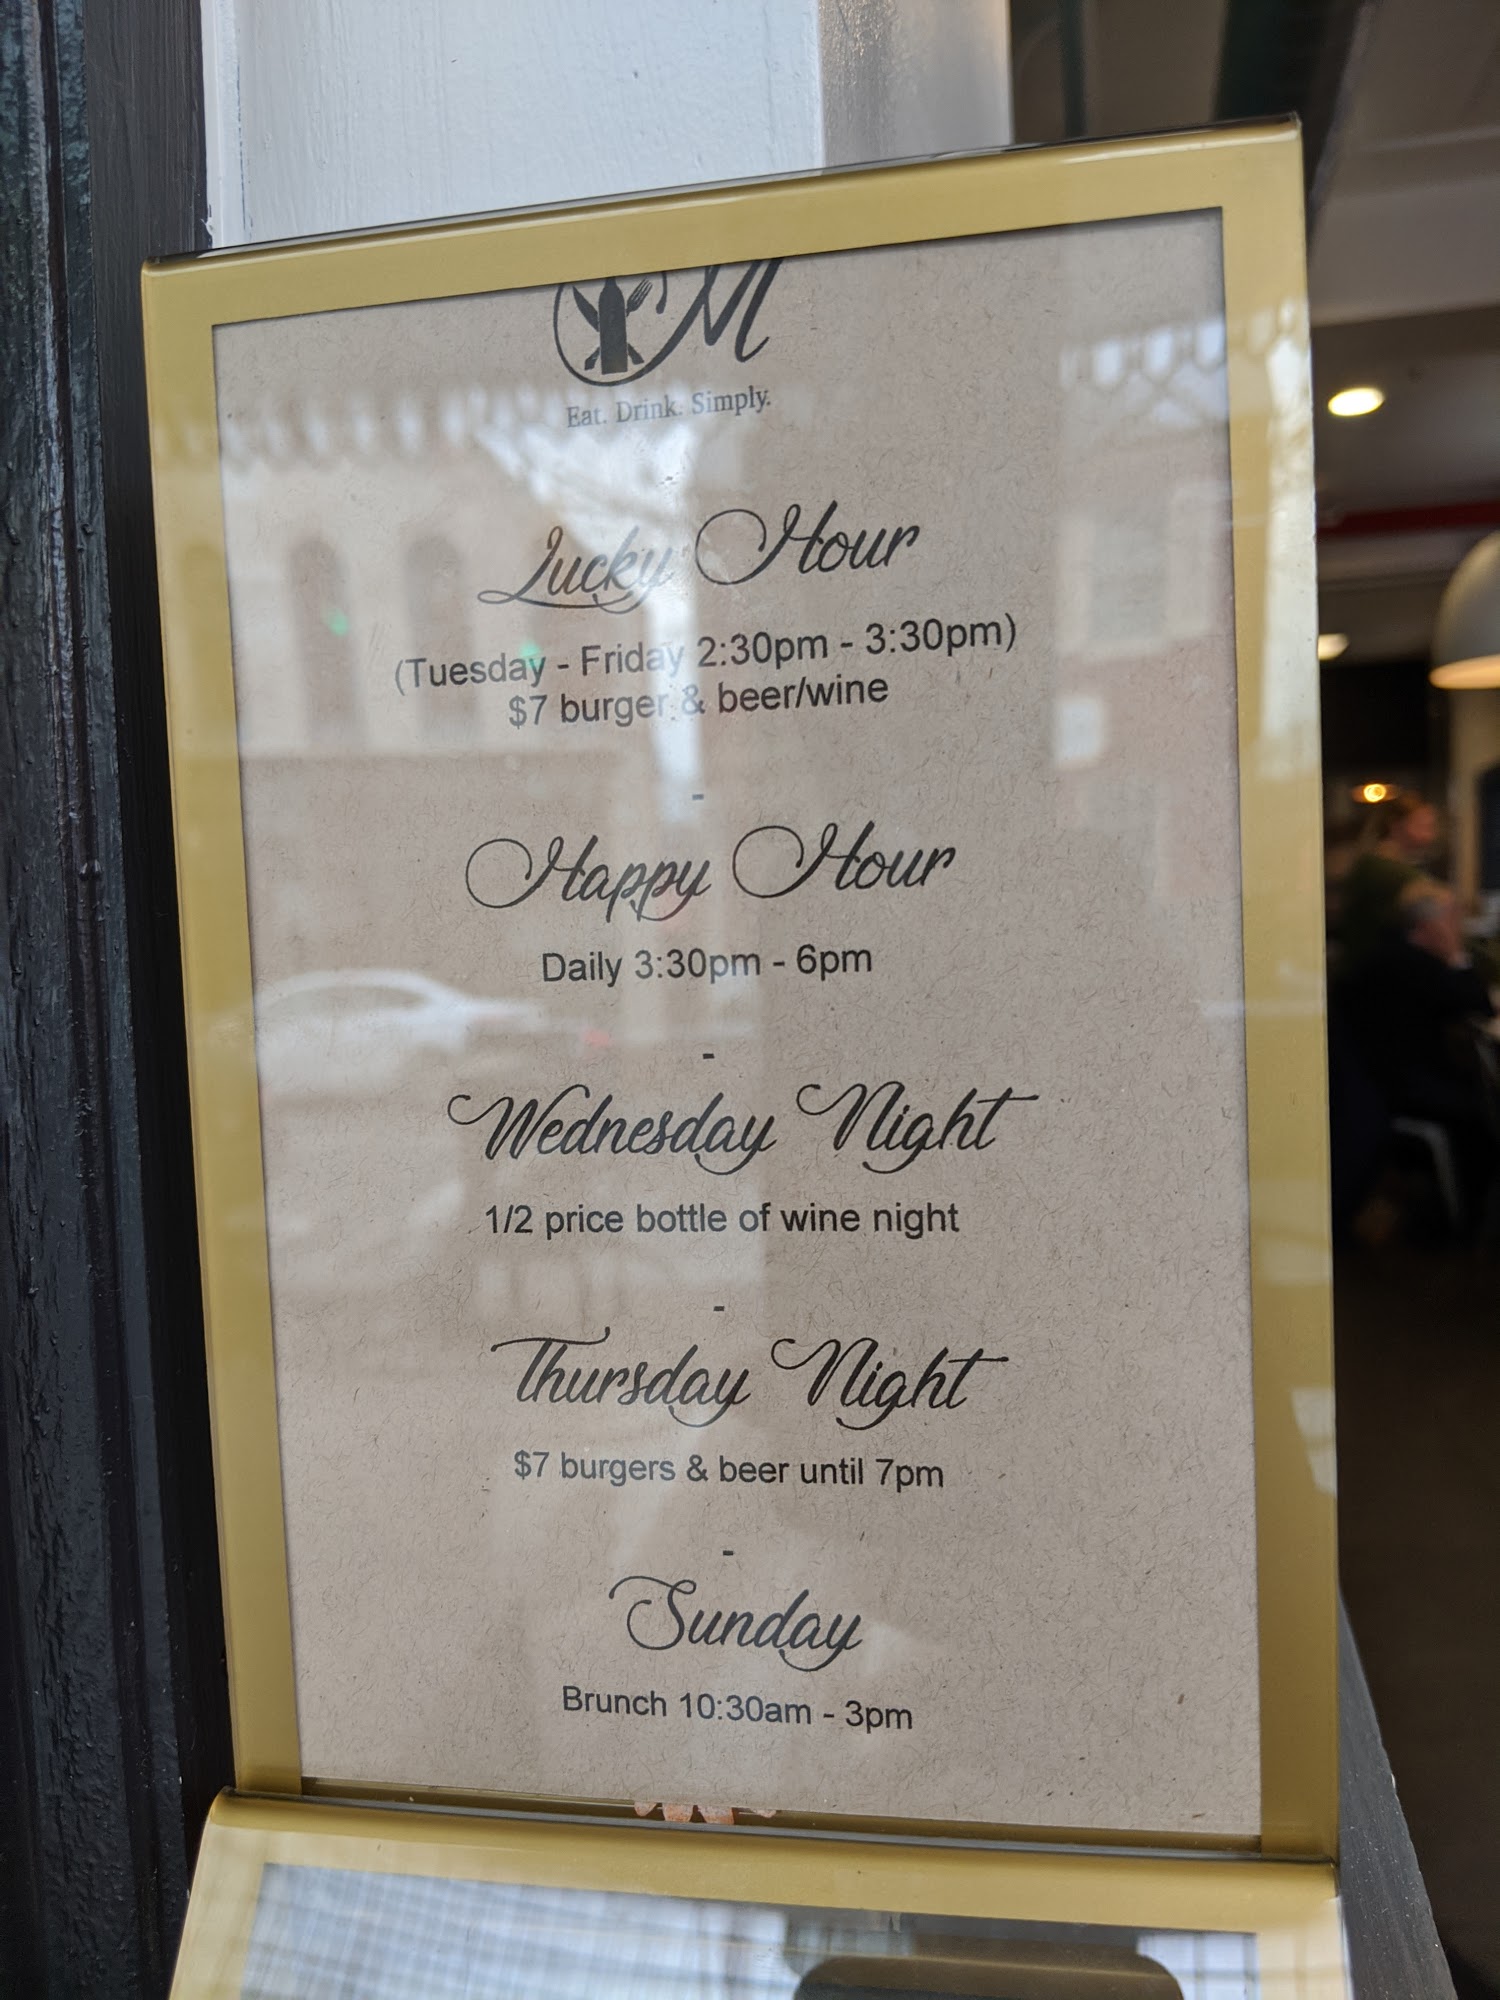 M
Eat. Drink. Simply.
Lucky Hour
(Tuesday - Friday 2:30pm - 3:30pm)
$7 burger & beer/wine
-
Happy Hour
Daily 3:30pm - 6pm
-
Wednesday Night
1/2 price bottle of wine night
-
Thursday Night
$7 burgers & beer until 7pm
-
Sunday
Brunch 10:30am - 3pm